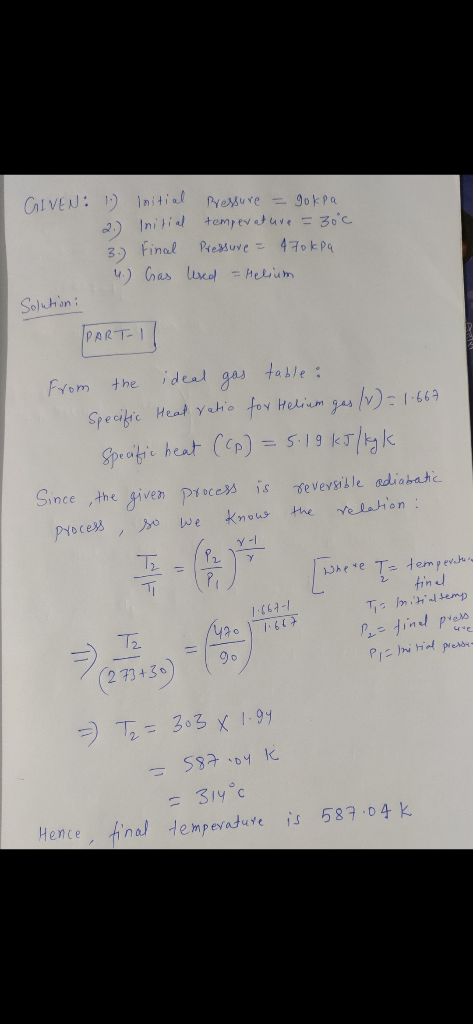 GIVEN: 1.) Initial Pressure = 90kPa
2.) Initial temperature = 30°C
3.) Final Pressure = 470kPa
4.) Gas Used = Helium
Solution:
PART-1
From the ideal gas table:
Specific Heat ratio for Helium gas (γ) = 1.667
Specific heat (Cp) = 5.19 kJ/kg k
Since, the given process is reversible adiabatic
process, so we know the relation:
T2/T1 = (P2/P1)^(γ-1/γ)
[Where T2 = temperature
final
T1 = Initial temp
P2 = final pressure
P1 = Initial pressure
=> T2/(273+30) = (470/90)^(1.667-1/1.667)
=> T2 = 303 X 1.94
= 587.04 K
= 314°C
Hence, final temperature is 587.04 K